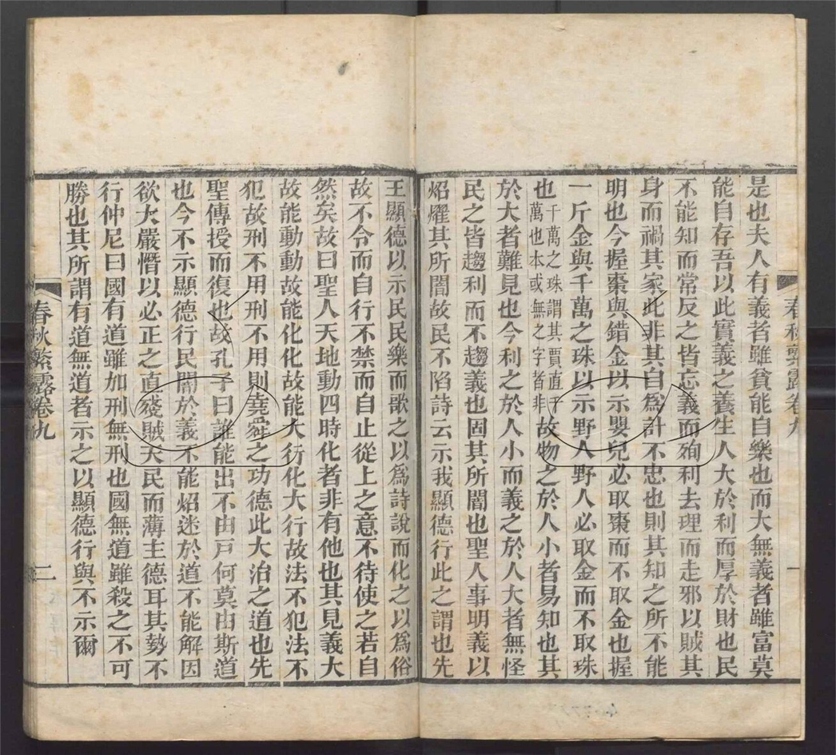 是也夫人有義者雖貧能自樂也而大無義者雖富莫
能自存吾以此實義之養生人大於利而厚於財也民
不能知而常反之皆忘義而殉利去理而走邪以賊其
身而禍其家此非其自為計不忠也則其知之所不能
明也今握棗與錯金以示嬰兒必取棗而不取金也握
一斤金與千萬之珠以示野人野人必取金而不取珠
也千萬之珠謂其賈直千萬也本或無之字者非故物之於人小者易知也其
於大者難見也今利之於人小而義之於人大者無怪
民之皆趨利而不趨義也固其所闇也聖人事明義以
炤燿其所闇故民不陷詩云示我顯德行此之謂也先
春秋繁露卷九
一
王顯德以示民民樂而歌之以為詩說而化之以為俗
故不令而自行不禁而自止從上之意不待使之若自
然矣故曰聖人天地動四時化者非有他也其見義大
故能動動故能化化故能大行化大行故法不犯法不
犯故刑不用刑不用則堯舜之功德此大治之道也先
聖傳授而復也故孔子曰誰能出不由戶何莫由斯道
也今不示顯德行民闇於義不能炤迷於道不能解因
欲大嚴憯以必正之直殘賊天民而薄主德耳其勢不
行仲尼曰國有道雖加刑無刑也國無道雖殺之不可
勝也其所謂有道無道者示之以顯德行與不示爾
春秋繁露卷九
二